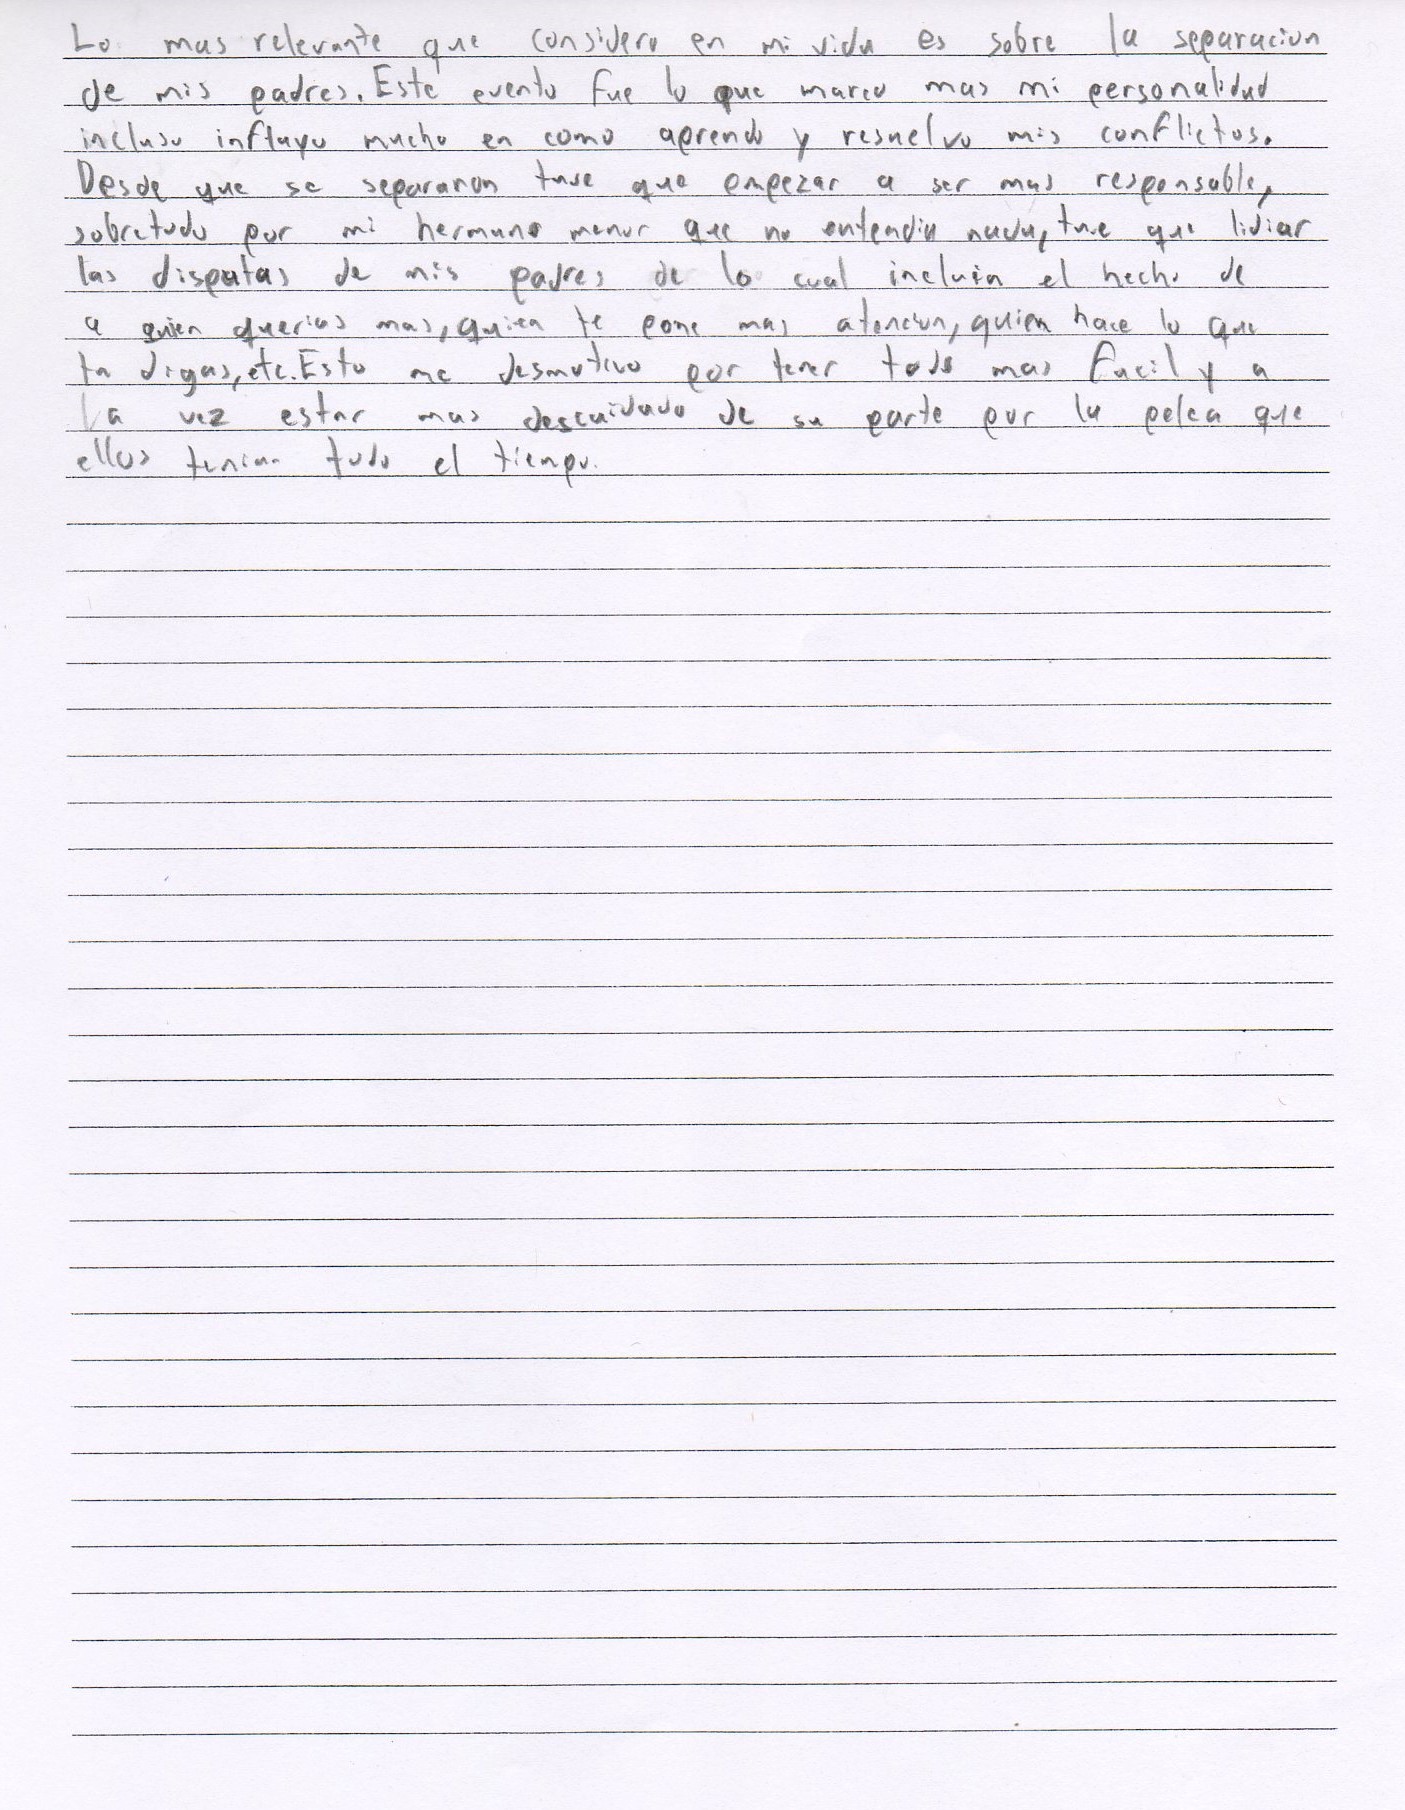 Lo mas relevante que considero en mi vida es sobre la separacion
de mis padres. Este evento fue lo que marco mas mi personalidad
incluso influyo mucho en como aprendo y resuelvo mis conflictos.
Desde que se separaron tuve que empezar a ser mas responsable,
sobretodo por mi hermano menor que no entendia nada, tuve que lidiar
las disputas de mis padres de lo cual incluian el hecho de
a quien querias mas, quien te pone mas atencion, quien hace lo que
tu digas, etc. Esto me desmotivo por tener todo mas facil y a
la vez estar mas descuidado de su parte por la pelea que
ellos tenian todo el tiempo.